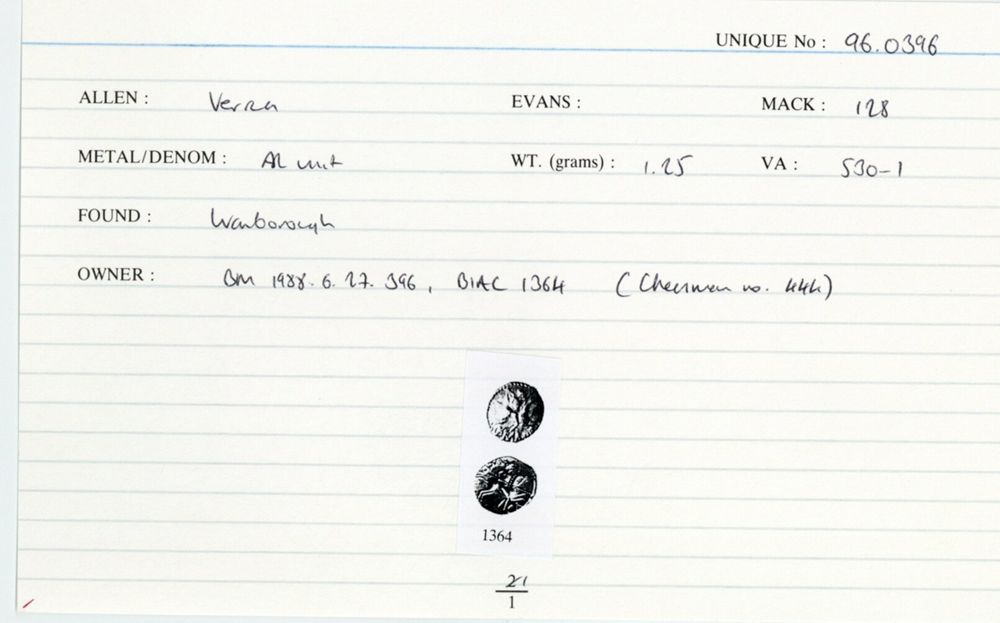 UNIQUE No : 96.0396
ALLEN : Verica EVANS : MACK : 128
METAL/DENOM : AR unit WT. (grams) : 1.25 VA : 530-1
FOUND : Wanborough
OWNER : BM 1988.6.27.396, BIAC 1364 (Cheesman no. 444)
1364
21
1